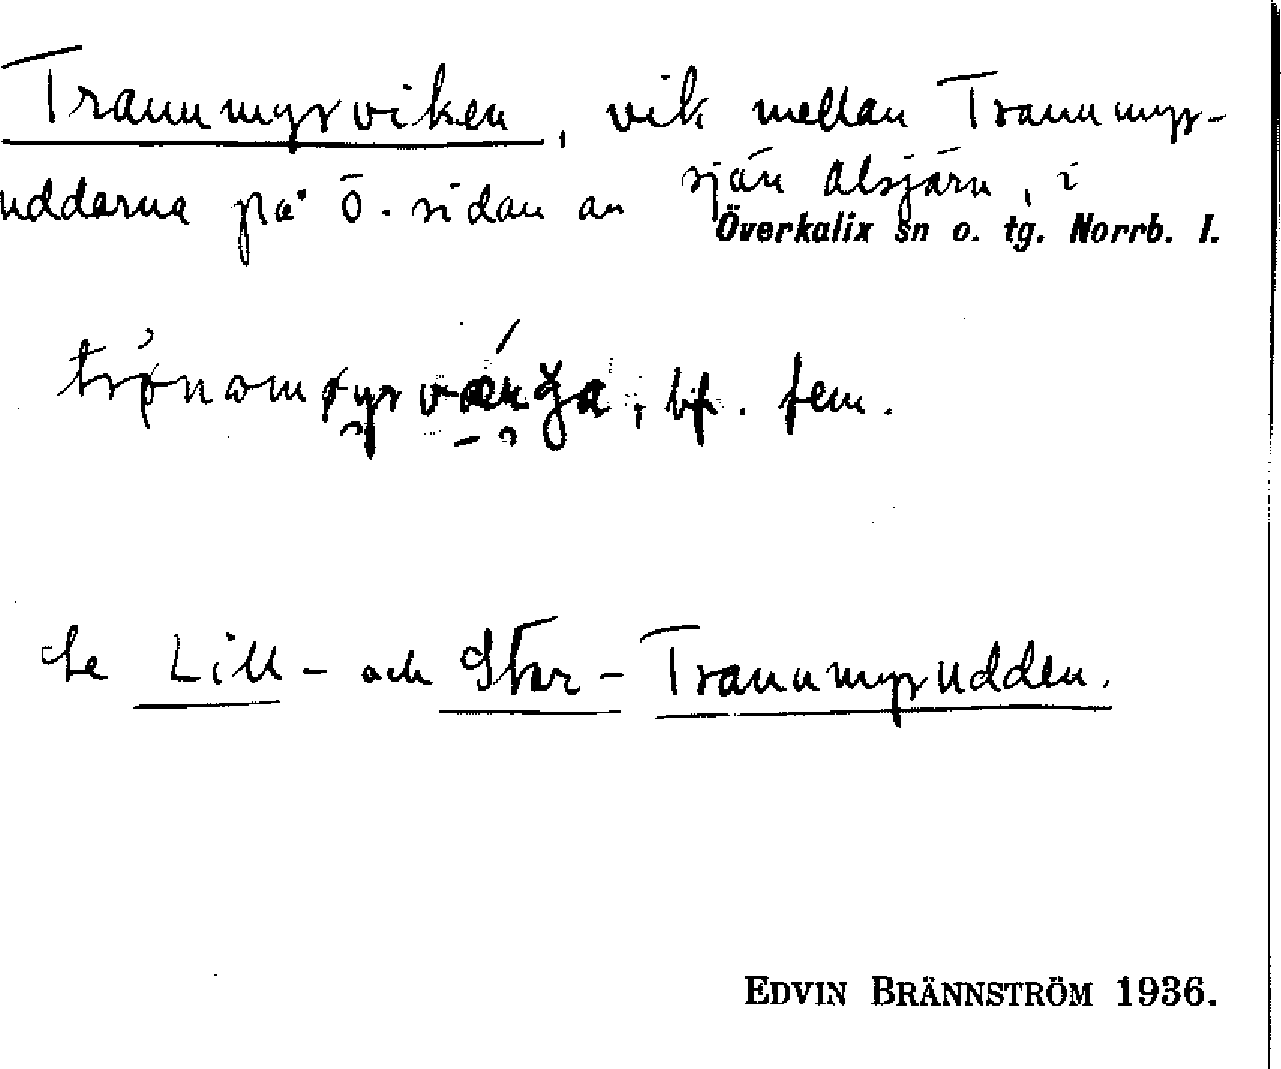 Tranumyrviken, vik mellan Tranumyr-
uddarna på Ö. sidan av sjön Alsjärv, i
Överkalix sn o. tg. Norrb. l.
bf. fem.
Se Lill- och Stor-Tranumyrudden.
EDVIN BRÄNNSTRÖM 1936.